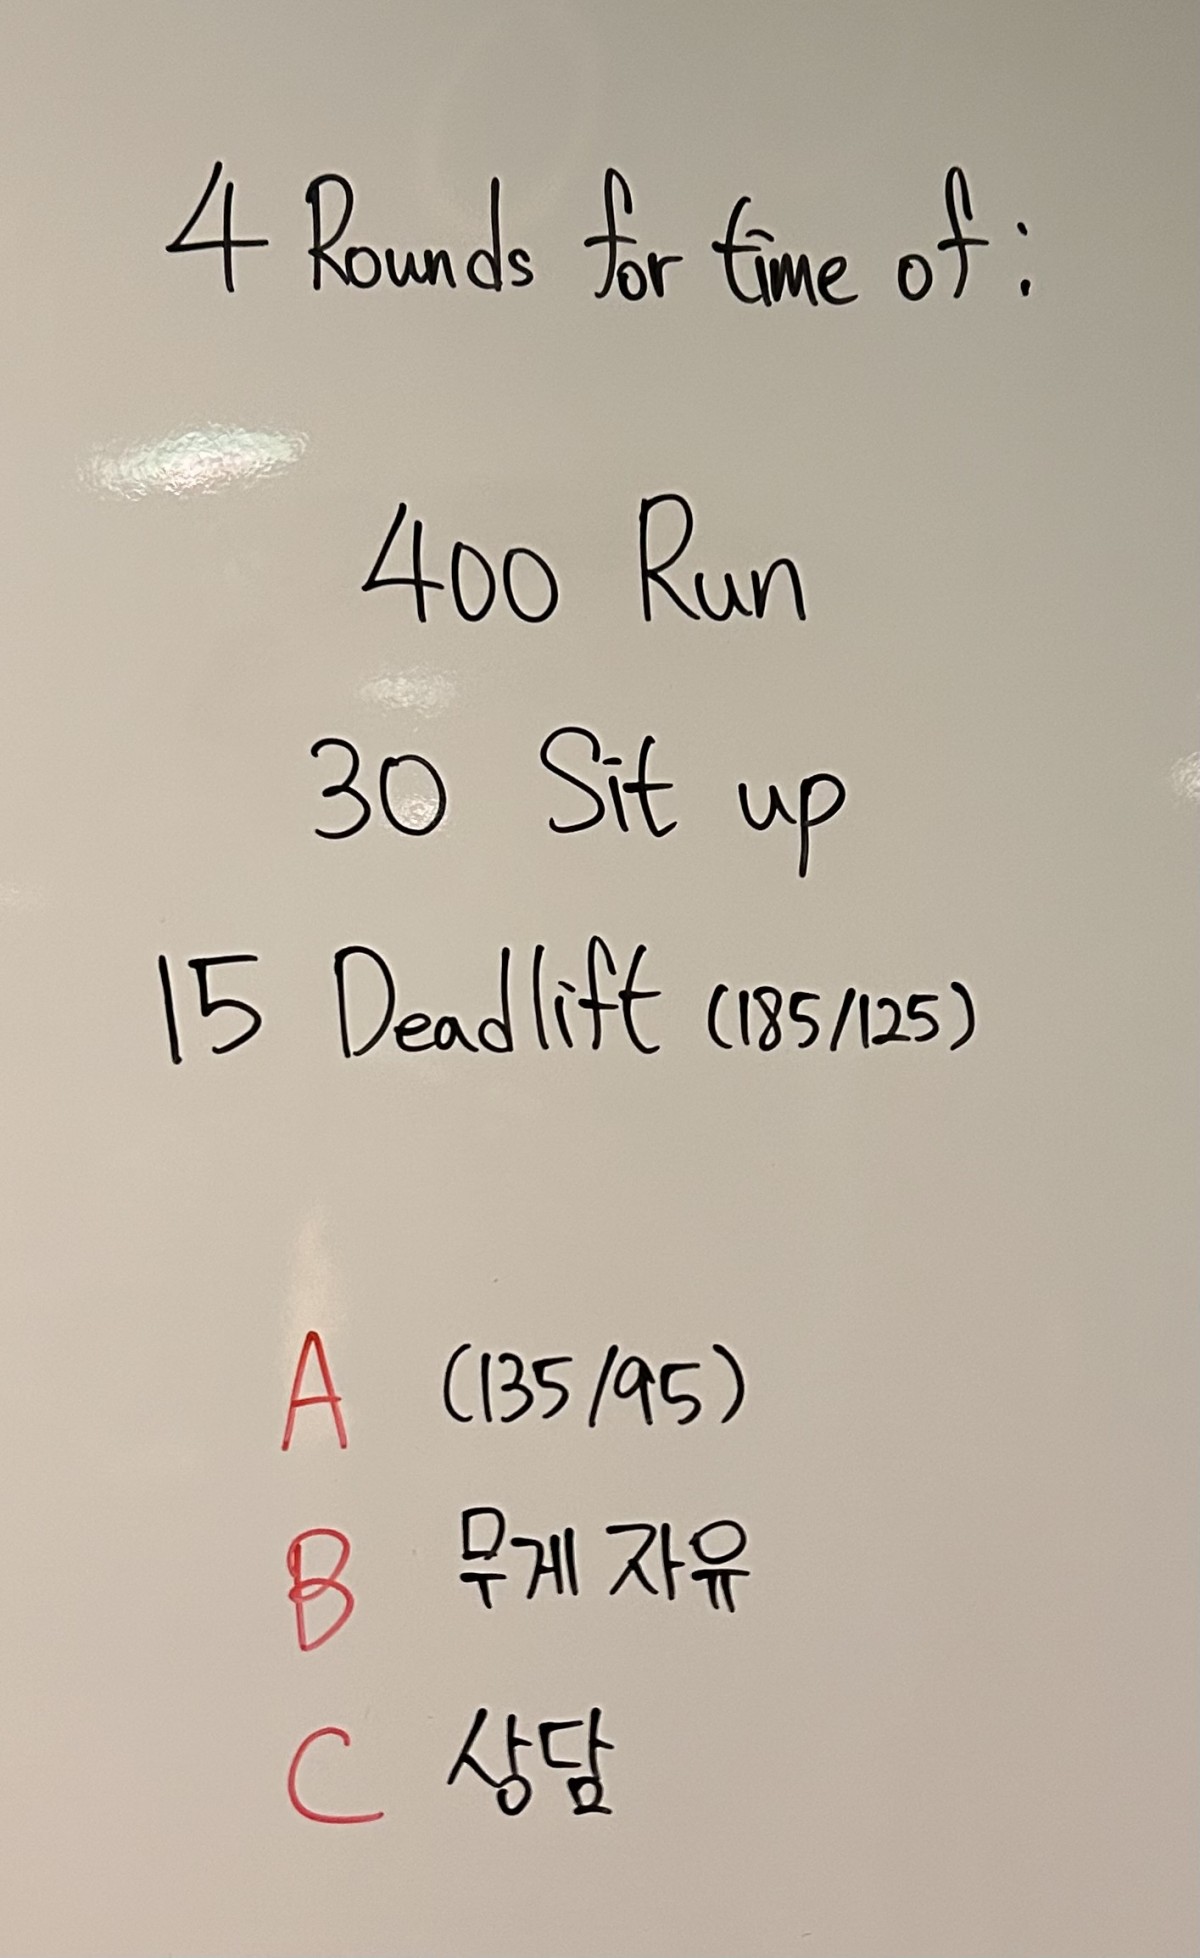 4 Rounds for time of:
400 Run
30 Sit up
15 Deadlift (185/125)
A (135/95)
B 무게 자유
C 상담